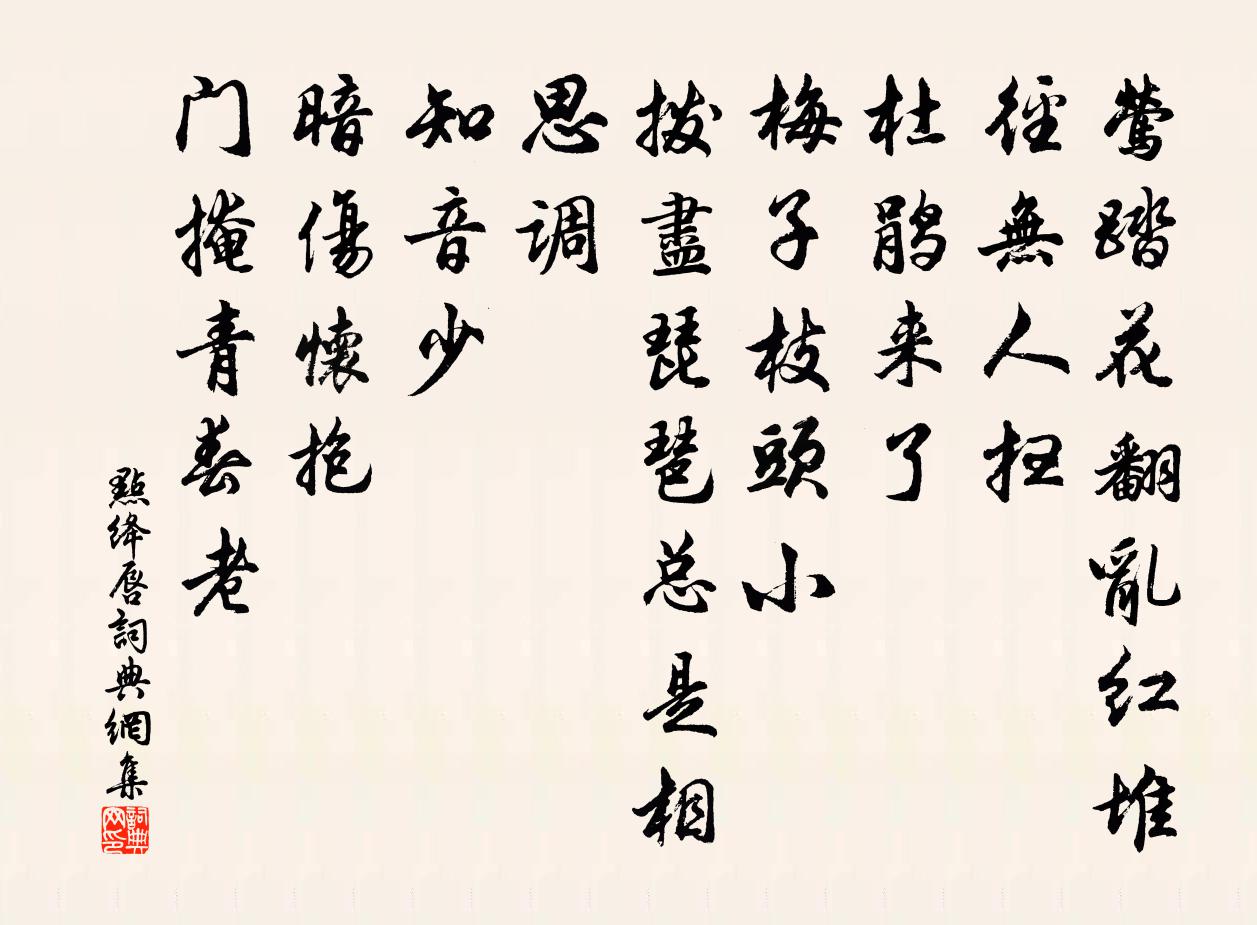 莺踏花翻亂红堆
徑無人扫
杜鹃来了
梅子枝頭小
拨盡琵琶总是相
思调
知音少
暗傷懷抱
门掩青春老
點绛唇詞典網集
詞典网印